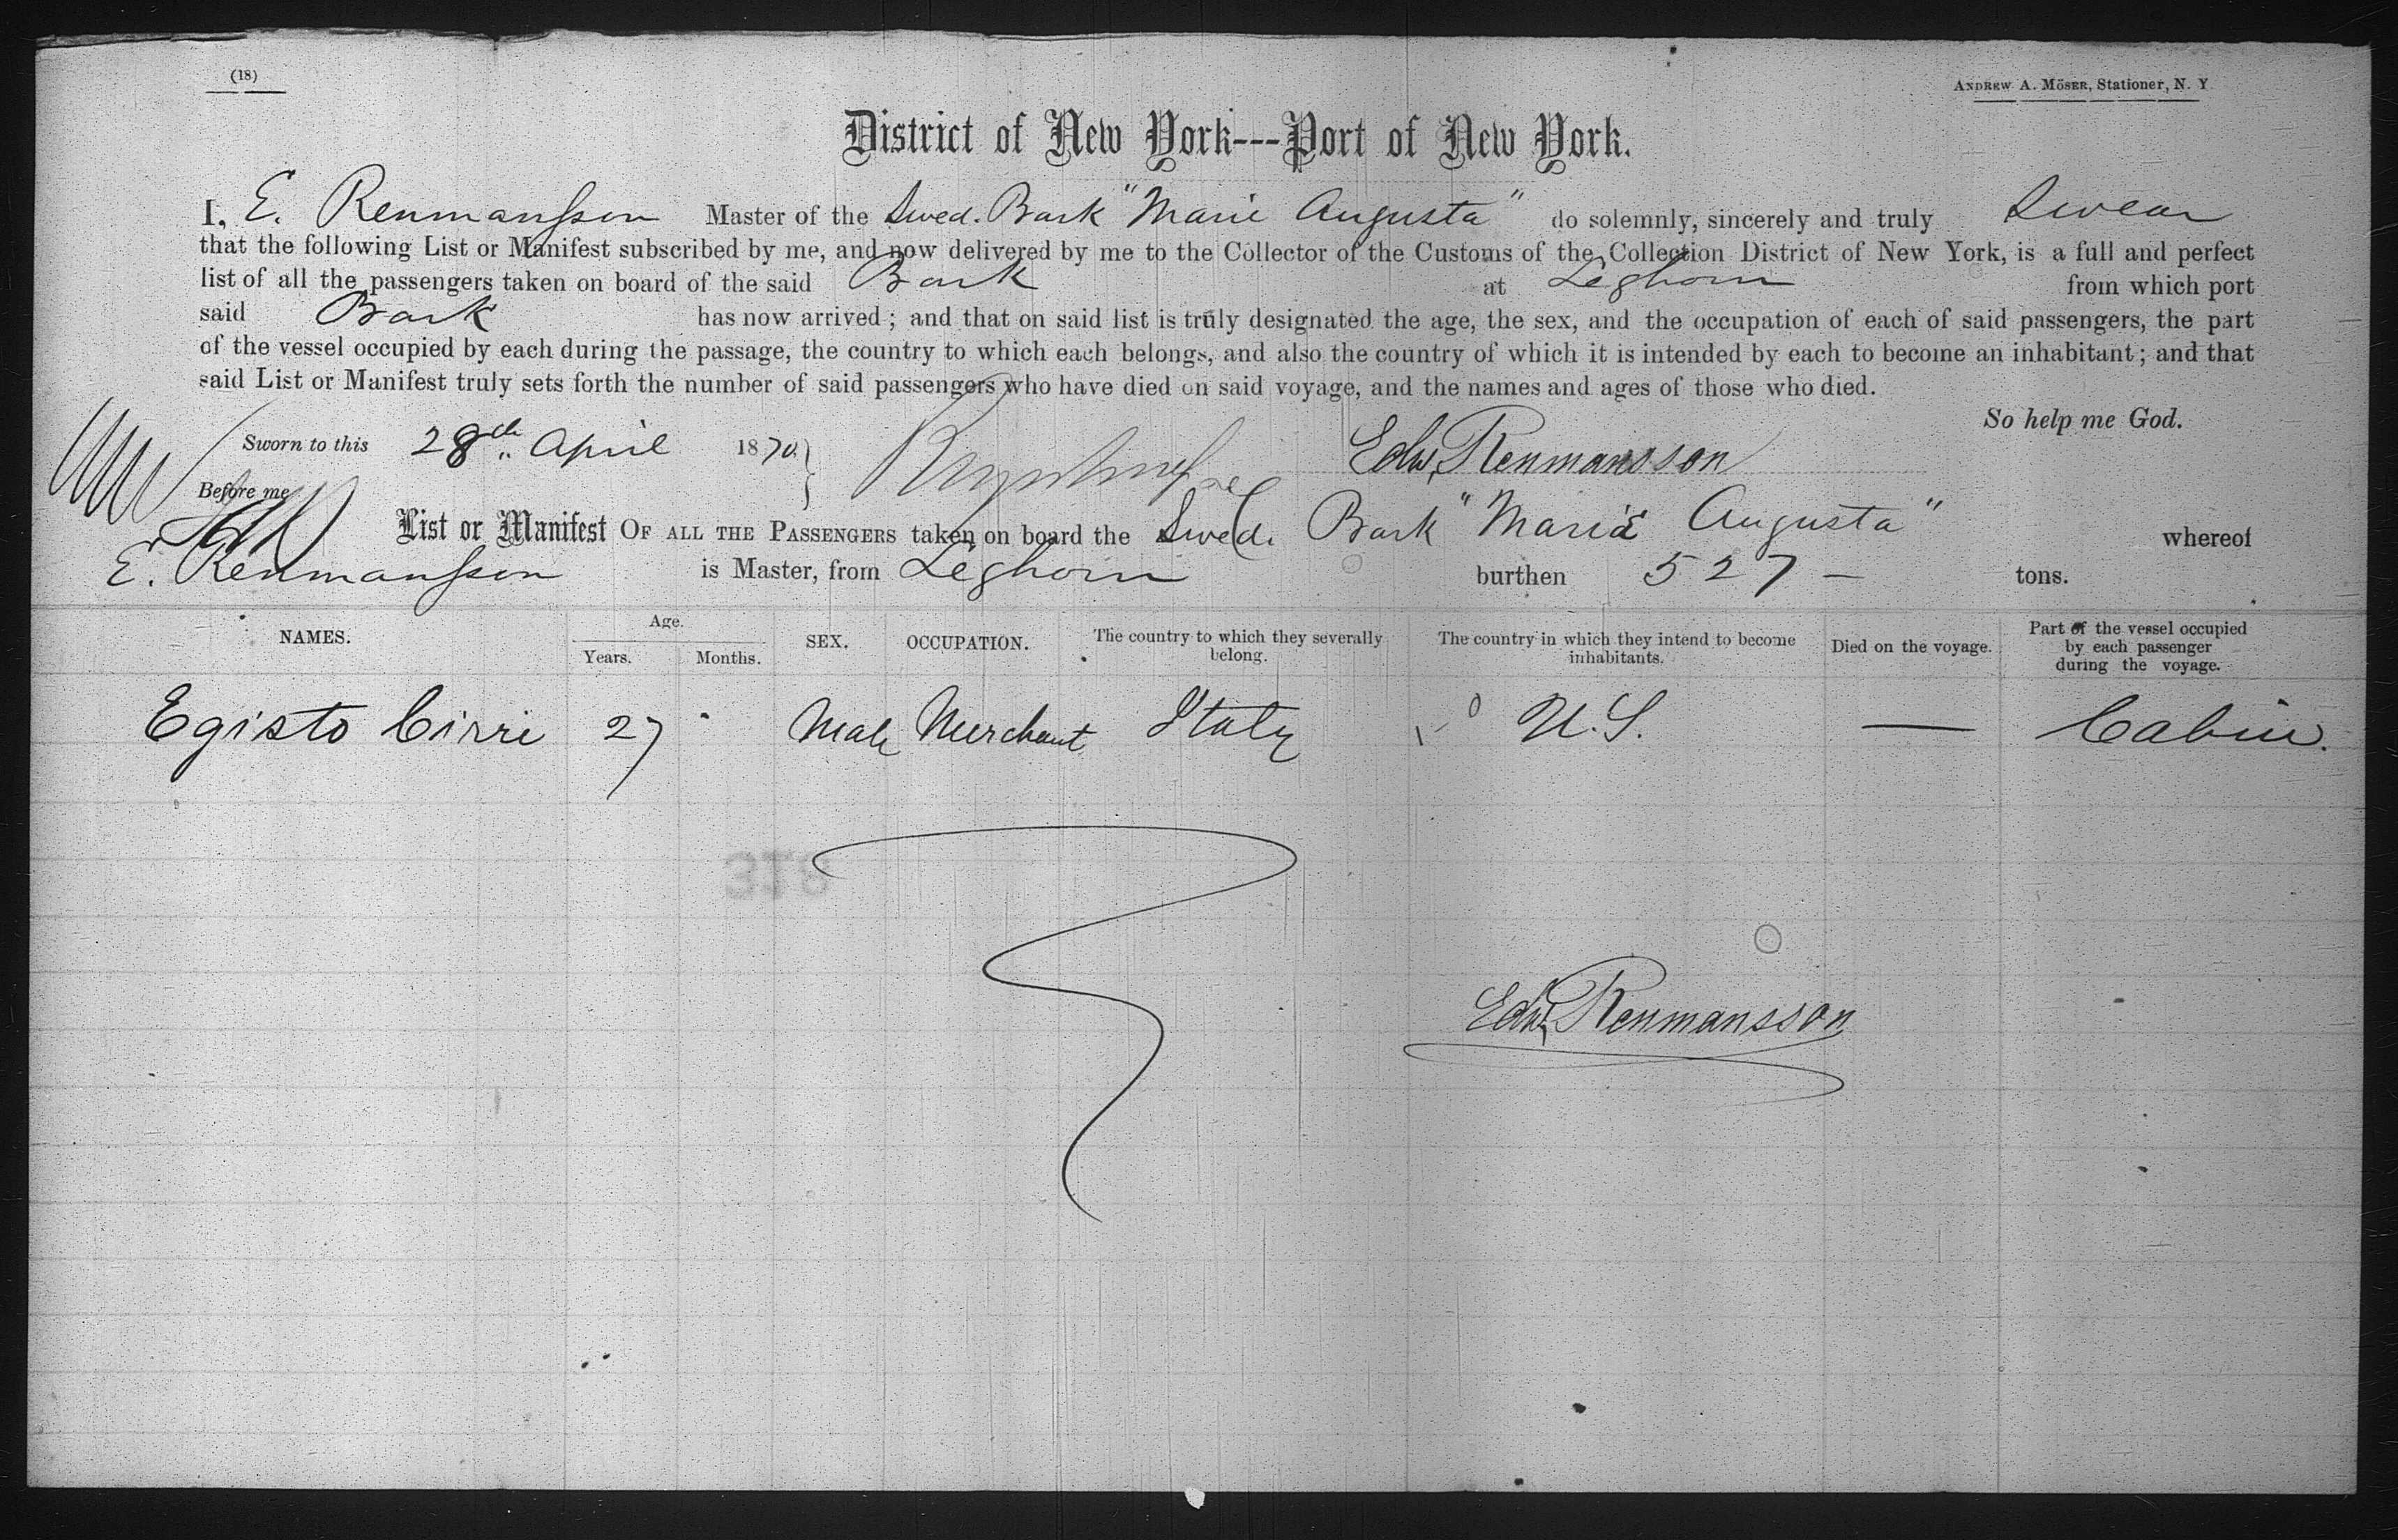 (18)
ANDREW A. MÖSER, Stationer, N. Y
District of New York---Port of New York.
I, E. Renmansson Master of the Swed. Bark "Marie Augusta" do solemnly, sincerely and truly Swear
that the following List or Manifest subscribed by me, and now delivered by me to the Collector of the Customs of the Collection District of New York, is a full and perfect
list of all the passengers taken on board of the said Bark at Leghorn from which port
said Bark has now arrived; and that on said list is truly designated the age, the sex, and the occupation of each of said passengers, the part
of the vessel occupied by each during the passage, the country to which each belongs, and also the country of which it is intended by each to become an inhabitant; and that
said List or Manifest truly sets forth the number of said passengers who have died on said voyage, and the names and ages of those who died.
So help me God.
Sworn to this 28th April 1870 Edw. Renmansson
Before me
List or Manifest OF ALL THE PASSENGERS taken on board the Swed. Bark "Marie Augusta" whereof
E. Renmansson is Master, from Leghorn burthen 527 — tons.
NAMES. Age. Years. Months. SEX. OCCUPATION. The country to which they severally belong. The country in which they intend to become inhabitants. Died on the voyage. Part of the vessel occupied by each passenger during the voyage.
Egisto Cirri 27 Male Merchant Italy U.S. — Cabin.
Edw. Renmansson